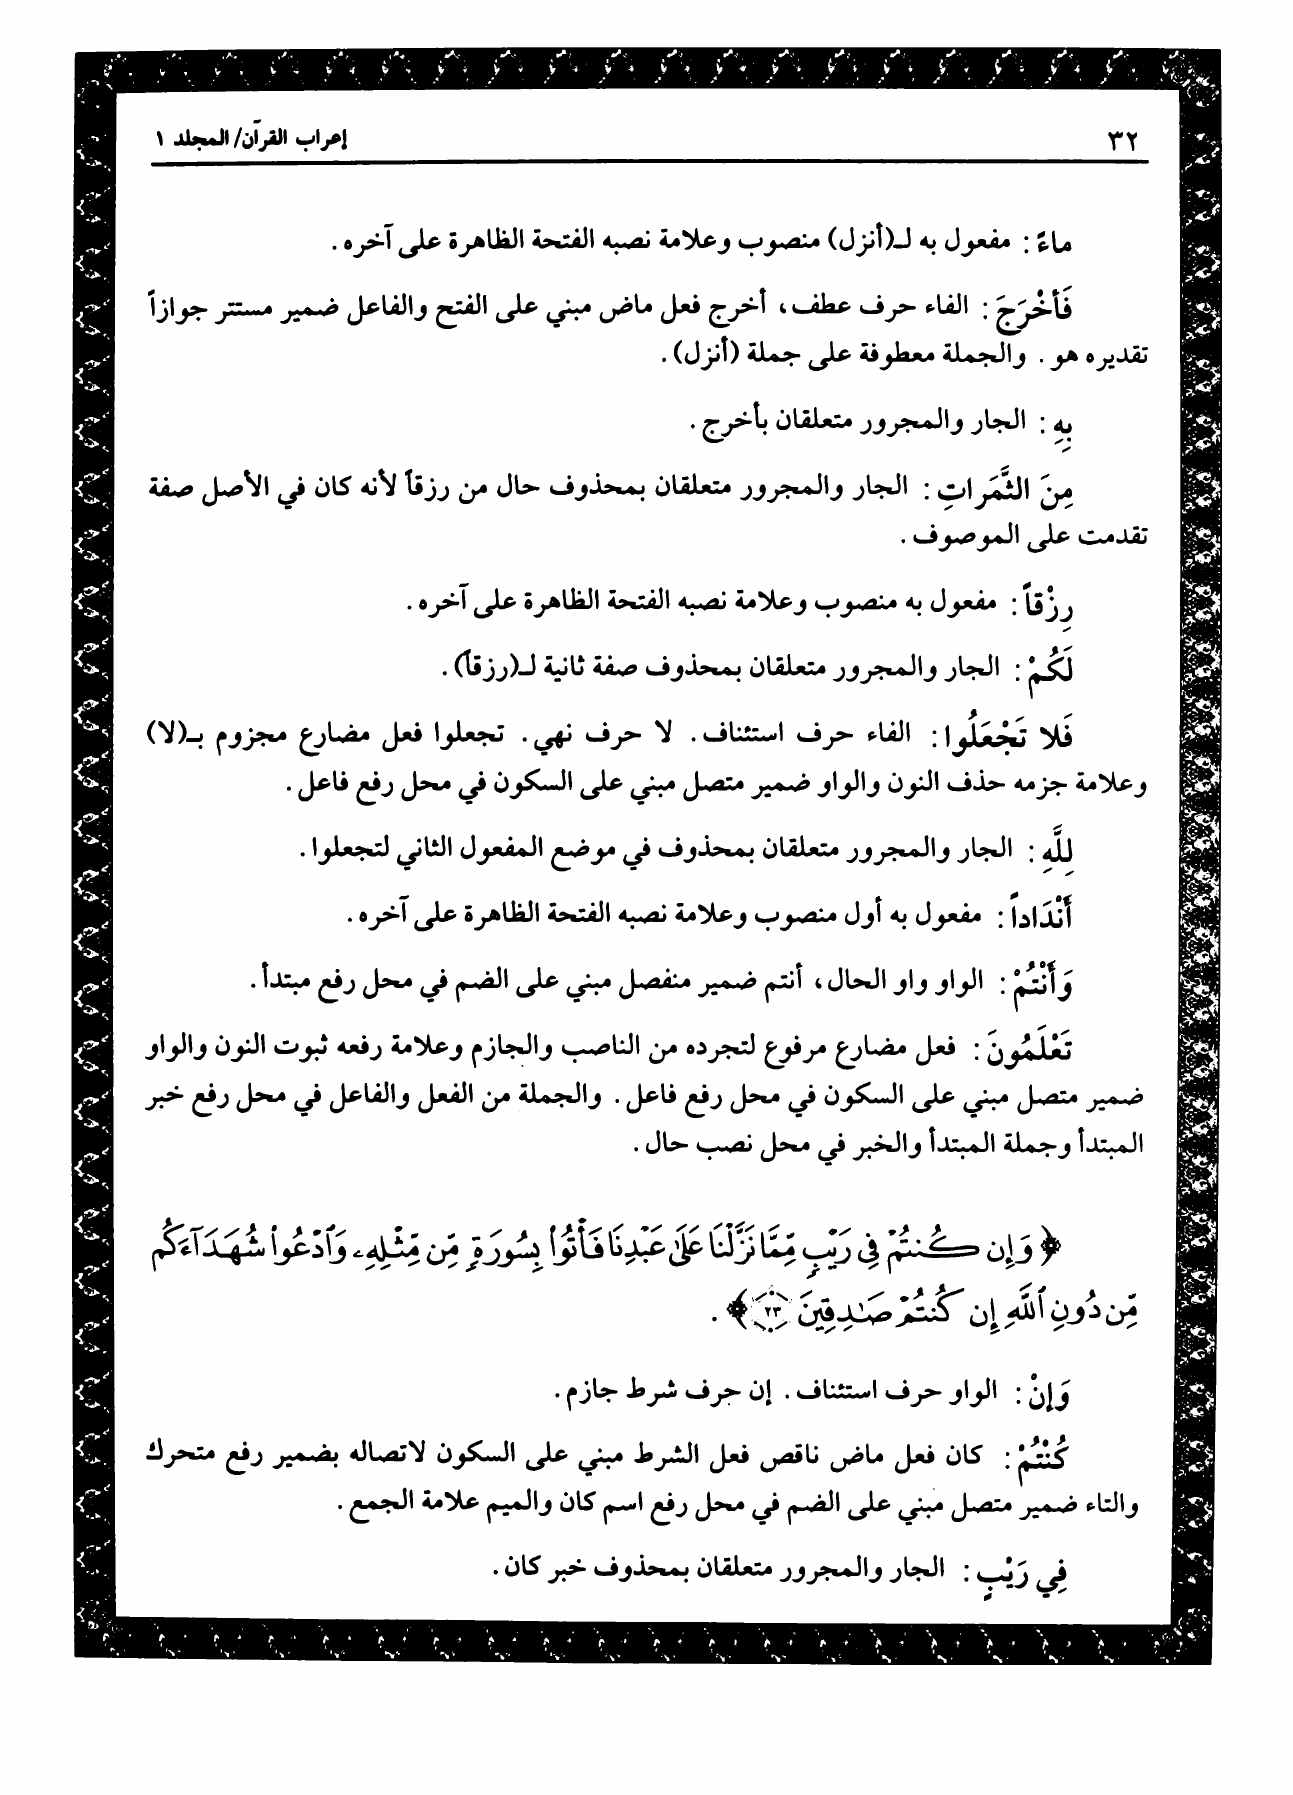 ٣٢
إعراب القرآن/ المجلد ١
ماءً: مفعول به لـ(أنزل) منصوب وعلامة نصبه الفتحة الظاهرة على آخره.
فَأَخْرَجَ: الفاء حرف عطف، أخرج فعل ماض مبني على الفتح والفاعل ضمير مستتر جوازاً
تقديره هو. والجملة معطوفة على جملة (أنزل).
بِهِ: الجار والمجرور متعلقان بأخرج.
مِنَ الثَّمَراتِ: الجار والمجرور متعلقان بمحذوف حال من رزقاً لأنه كان في الأصل صفة
تقدمت على الموصوف.
رِزْقاً: مفعول به منصوب وعلامة نصبه الفتحة الظاهرة على آخره.
لَكُمْ: الجار والمجرور متعلقان بمحذوف صفة ثانية لـ(رزقاً).
فَلا تَجْعَلُوا: الفاء حرف استئناف. لا حرف نهي. تجعلوا فعل مضارع مجزوم بـ(لا)
وعلامة جزمه حذف النون والواو ضمير متصل مبني على السكون في محل رفع فاعل.
لِلَّهِ: الجار والمجرور متعلقان بمحذوف في موضع المفعول الثاني لتجعلوا.
أَنْدَاداً: مفعول به أول منصوب وعلامة نصبه الفتحة الظاهرة على آخره.
وَأَنْتُمْ: الواو واو الحال، أنتم ضمير منفصل مبني على الضم في محل رفع مبتدأ.
تَعْلَمُونَ: فعل مضارع مرفوع لتجرده من الناصب والجازم وعلامة رفعه ثبوت النون والواو
ضمير متصل مبني على السكون في محل رفع فاعل. والجملة من الفعل والفاعل في محل رفع خبر
المبتدأ وجملة المبتدأ والخبر في محل نصب حال.
﴿وَإِن كُنتُمْ فِي رَيْبٍ مِّمَّا نَزَّلْنَا عَلَىٰ عَبْدِنَا فَأْتُوا۟ بِسُورَةٍ مِّن مِّثْلِهِۦ وَٱدْعُوا۟ شُهَدَآءَكُم
مِّن دُونِ ٱللَّهِ إِن كُنتُمْ صَـٰدِقِينَ ٢٣﴾.
وَإِنْ: الواو حرف استئناف. إن حرف شرط جازم.
كُنْتُمْ: كان فعل ماض ناقص فعل الشرط مبني على السكون لاتصاله بضمير رفع متحرك
والتاء ضمير متصل مبني على الضم في محل رفع اسم كان والميم علامة الجمع.
فِي رَيْبٍ: الجار والمجرور متعلقان بمحذوف خبر كان.